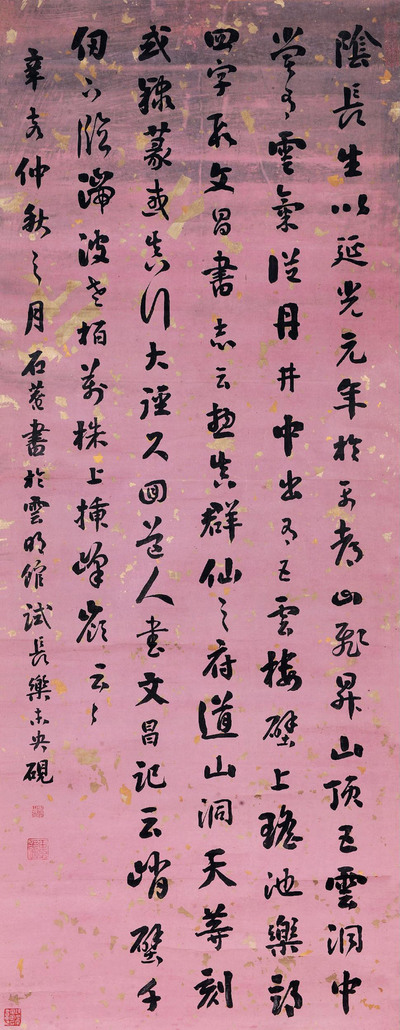 陰長生以延光元年於平都山飛昇山頂五雲洞中
嘗有雲氣從丹井中出有五雲樓壁上瑤池樂部
四字段文昌書志云邈真群仙之府道山洞天等刻
或隸篆或真行大徑又回道人書文昌記云峭壁千
仞下臨湍波老柏萬株上插峰嶺云々
辛亥仲秋之月石菴書於雲明館試長樂未央硯